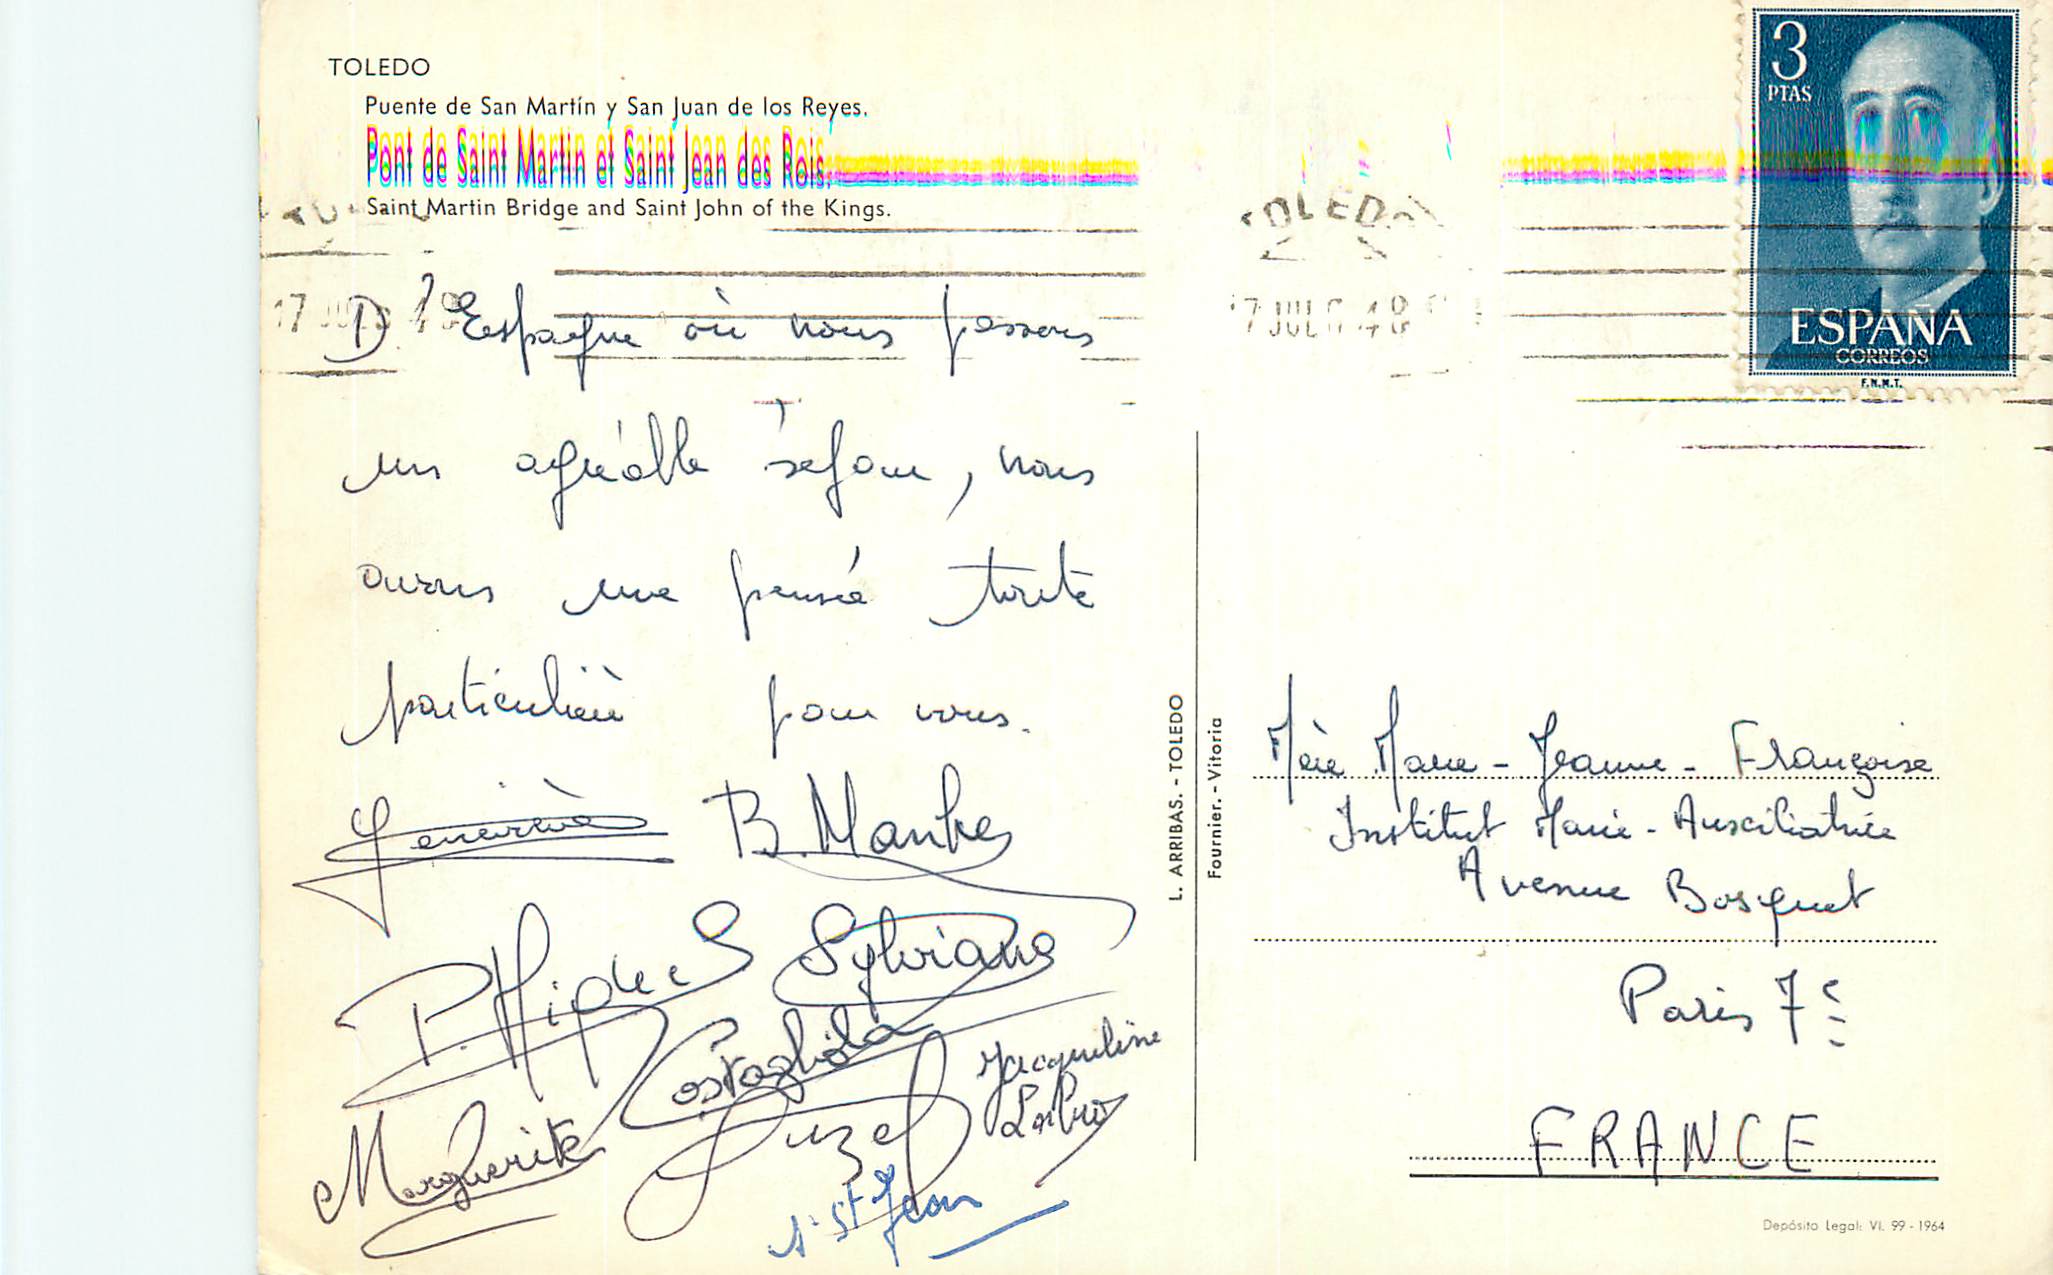 TOLEDO
Puente de San Martín y San Juan de los Reyes.
Pont de Saint Martin et Saint Jean des Rois.
Saint Martin Bridge and Saint John of the Kings.
3
PTAS
ESPAÑA
CORREOS
F.N.M.T.
TOLEDO
17 JUL
7 JUL
D'Espagne où nous passons
un agréable séjour, nous
avons une pensée toute
particulière pour vous.
Geneviève B. Manhes
P.
Sylviane
Costagliola
Jacqueline
Marguerite
Suzel
St Jean
L. ARRIBAS. - TOLEDO
Fournier. - Vitoria
Mère Marie-Jeanne-Françoise
Institut Marie-Auxiliatrice
Avenue Bosquet
Paris 7e
FRANCE
Depósito Legal: VI. 99 - 1964